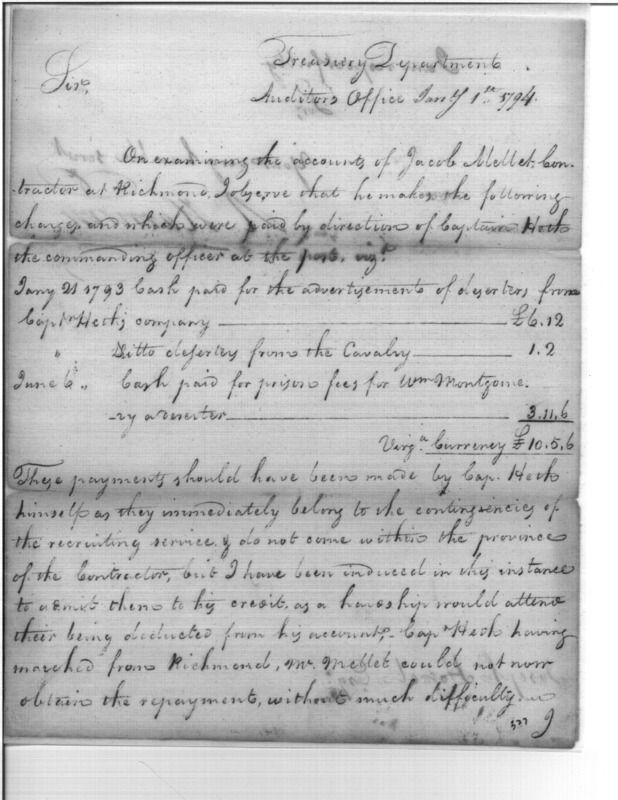 Treasury Department
Sir,
Auditors Office Jany 1st 1794.
On examining the accounts of Jacob Mellet Con-
tractor at Richmond, I observe that he makes the following
charges and which were paid by direction of Captain Heth
the commanding officer at the post, vizt.
Jany 21 1793 Cash paid for the advertisement of deserters from
Captn Heth's company £6.12
" Ditto deserters from the Cavalry 1.2
June 6 " Cash paid for prison fees for Wm Montgome-
-ry a deserter 3.11.6
Virga Currency £10.5.6
These payments should have been made by Cap. Heth
himself as they immediately belong to the contingencies of
the recruiting service, & do not come within the province
of the Contractor, but I have been induced in this instance
to admit them to his credit, as a hardship would attend
their being deducted from his account, Capn Heth having
marched from Richmond, Mr. Mellet could not now
obtain the repayment, without much difficulty
527